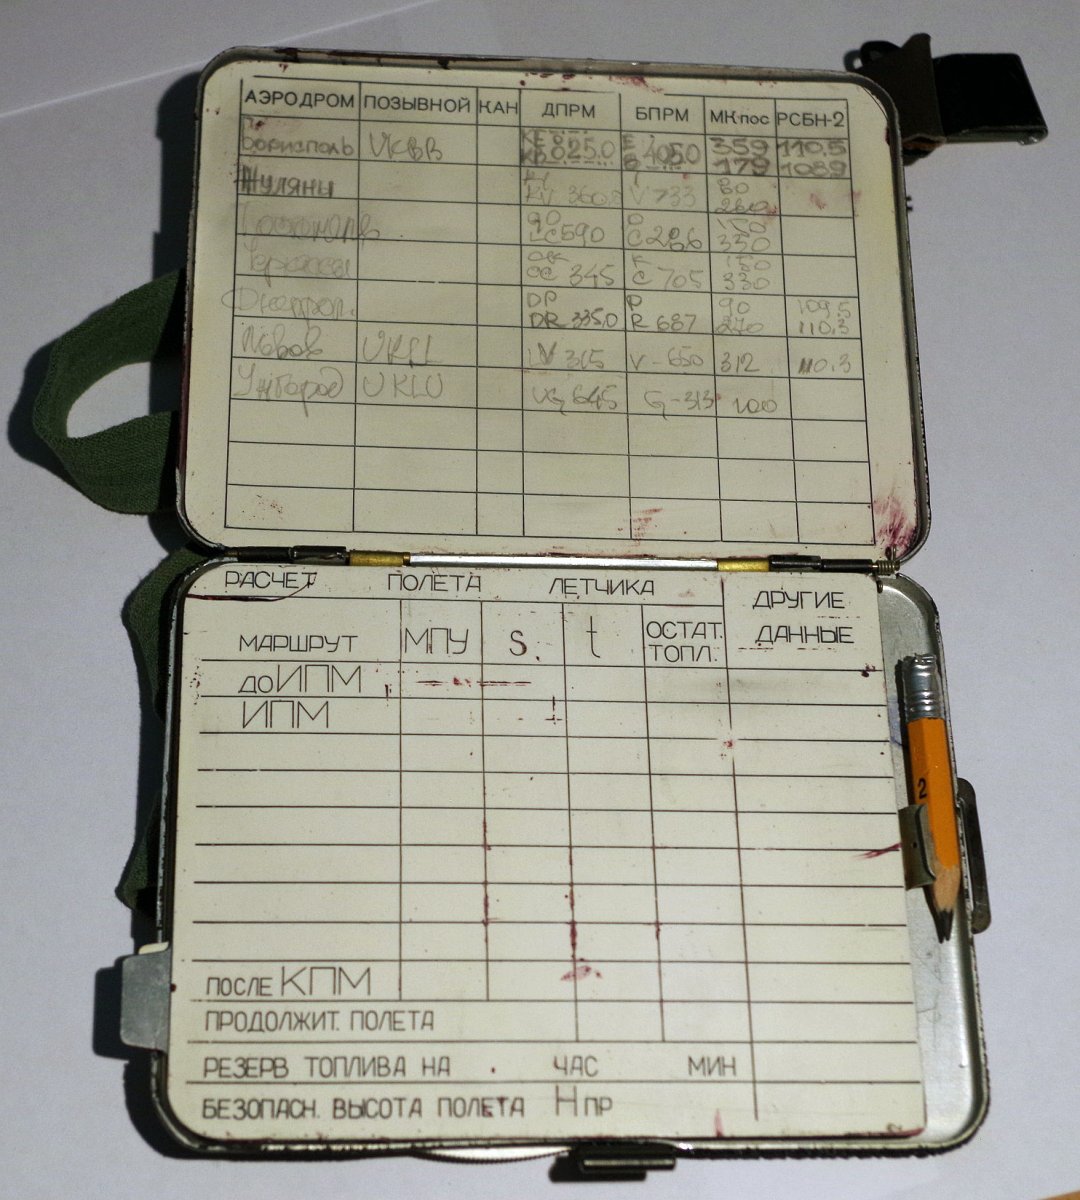 АЭРОДРОМ ПОЗЫВНОЙ КАН ДПРМ БПРМ МК-пос РСБН-2
Борисполь UKBB 825.0 405.0 359 110.5
179 108.9
Жуляны KV 360.0 V 733 80
260
590 C 286 150
330
Черкассы 345 C 705 150
330
Днепроп. DP P 90 109.5
DR 335.0 R 687 270 110.3
Львов UKLL LV 315 V - 650 312 110.3
Ужгород UKLU UG 645 G - 313 100
РАСЧЕТ ПОЛЕТА ЛЕТЧИКА ДРУГИЕ ДАННЫЕ
МАРШРУТ МПУ S t ОСТАТ. ТОПЛ.
ДО ИПМ
ИПМ
ПОСЛЕ КПМ
ПРОДОЛЖИТ. ПОЛЕТА
РЕЗЕРВ ТОПЛИВА НА ЧАС МИН
БЕЗОПАСН. ВЫСОТА ПОЛЕТА Н ПР
2